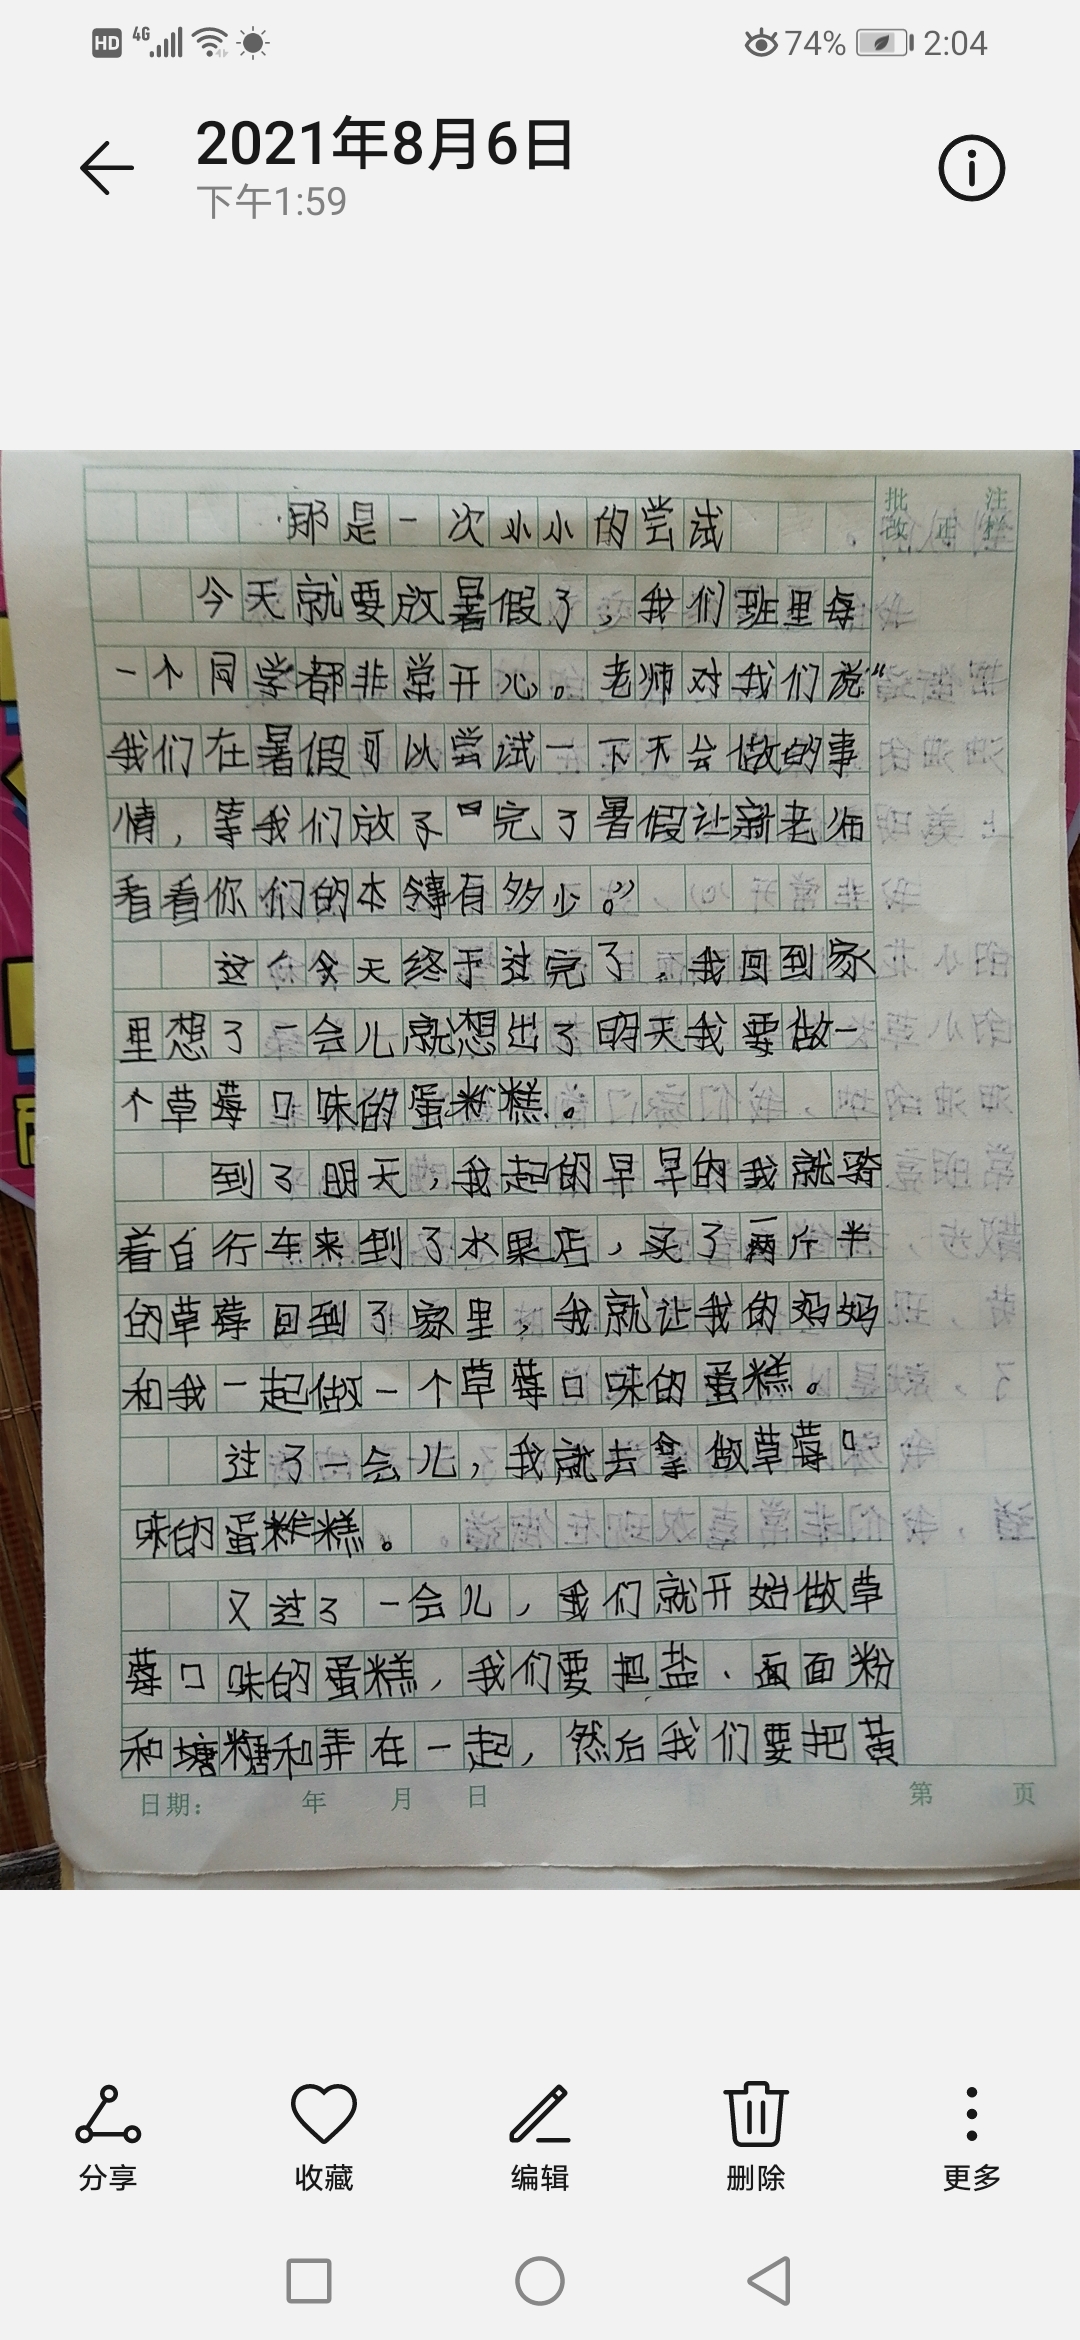 HD 4G 74% 2:04
2021年8月6日
下午1:59
批 注
改 正 栏
那是一次小小的尝试
今天就要放暑假了，我们班里每
一个同学都非常开心。老师对我们说“
我们在暑假可以尝试一下不会做的事
情，等我们放了完了暑假让新老师
看看你们的本领有多少。”
这个今天终于过完了，我回到家
里想了一会儿就想出了明天我要做一
个草莓口味的蛋糕。
到了明天，我起的早早的我就骑
着自行车来到了水果店，买了两斤半
的草莓回到了家里，我就让我的妈妈
和我一起做一个草莓口味的蛋糕。
过了一会儿，我就去拿做草莓口
味的蛋糕。
又过了一会儿，我们就开始做草
莓口味的蛋糕，我们要把盐、面面粉
和塘糖和弄在一起，然后我们要把黄
日期： 年 月 日 第 页
分享 收藏 编辑 删除 更多